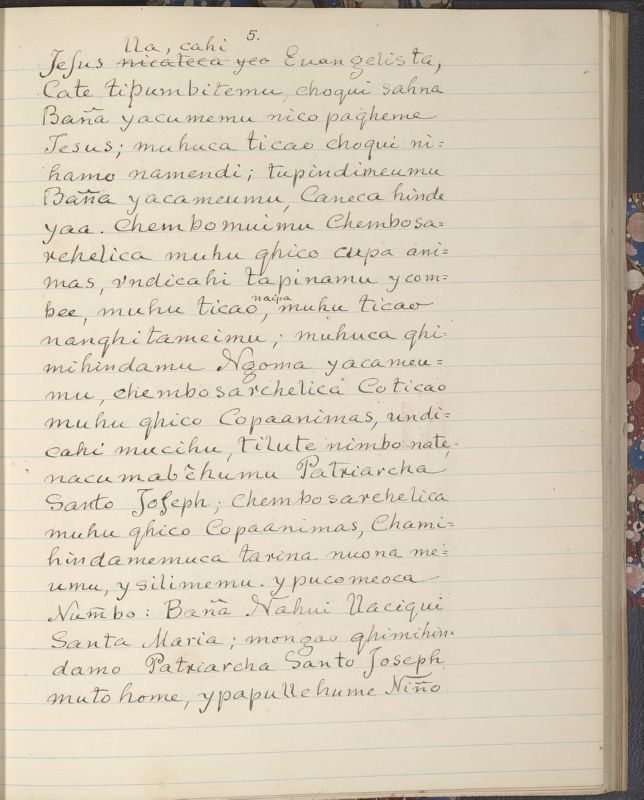 5.
Ua, cahi
Jesus nicateca yeo Euangelista,
Cate tipumbitemu, choqui sahna
Bañā yacumemu nico pagheme
Jesus; muhuca ticao choqui ni=
hamo namendi; tupindimeumu
Bañā yacameumu, Caneca hinde
yaa. Chembomuimu Chembosa=
rehelica muhu qhico cupa ani=
mas, vndicahi tapinamu ycom=
bee, muhu ticao, naipa muhu ticao
nanghitameimu; muhuca qhi=
mihindamu Ngoma yacameu=
mu, chembosarehelica Coticao
muhu qhico Copaanimas, undi=
cahi mucihu, tilute nimbo nate,
nacumabêhumu Patriarcha
Santo Joseph; Chembosarehelica
muhu qhico Copaanimas, Chami=
hindamemuca tarina nuona me=
umu, y silimemu. ypucomeoca
Num̄bo: Bañā Nahui Uaciqui
Santa Maria; mongao qhimihin=
damo Patriarcha Santo Joseph,
muto home, ypapullehume Niño